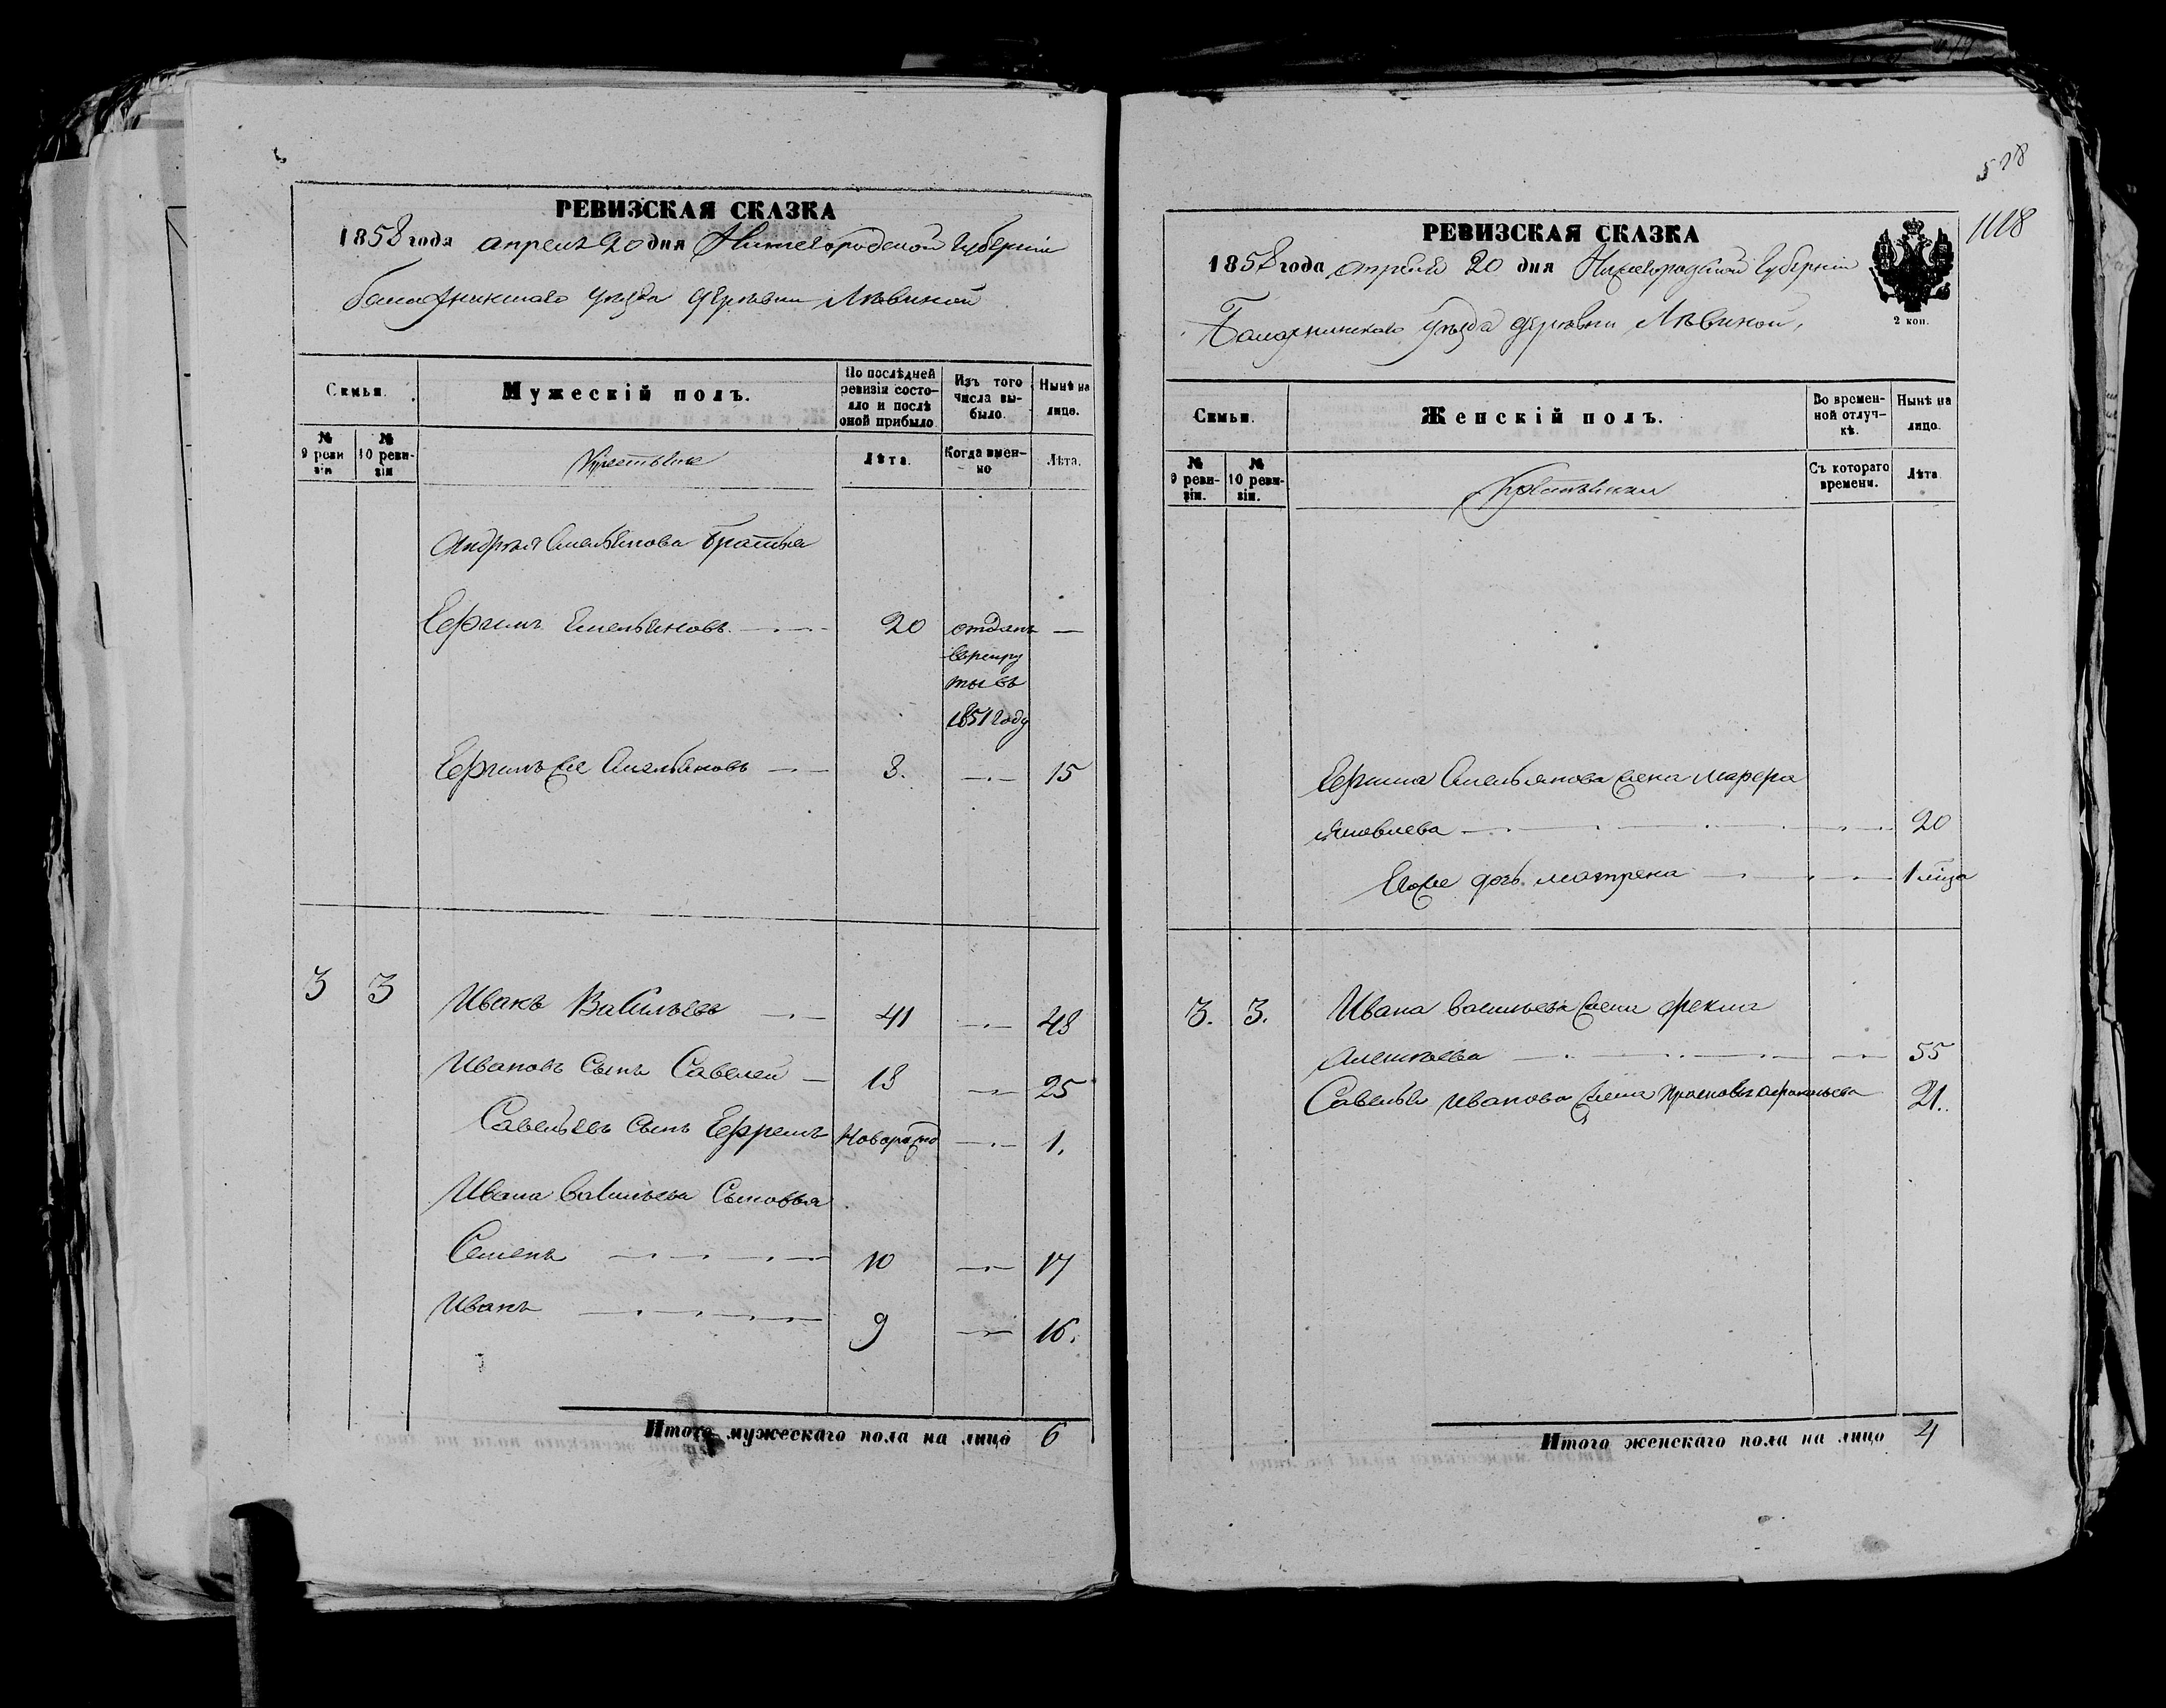 РЕВИЗСКАЯ СКАЗКА
1858 года апреля 20 дня Нижегородской Губерніи
балахнинскаго уезда деревни Лѣвиной
Семьи.
Мужескій полъ.
По послѣдней ревизіи состояло и послѣ оной прибыло
Изъ того числа выбыло.
Нынѣ на лицо.
№ 9 ревизіи
№ 10 ревизіи
Крестьяне
Лѣта.
Когда именно
Лѣта.
Андрея Емельянова братья
Ефимъ Емельяновъ 20 отданъ —
врекру
ты въ
1851 году
Ефимъ же Емельяновъ 8. 15
3 3 Иванъ Васильевъ 41 48
Ивановъ сынъ Савелей 18 25
Савельевъ сынъ Ефремъ Новорожд 1.
Ивана Васильева сыновья
Семенъ 10 17
Иванъ 9 16.
Итого мужескаго пола на лицо 6
528
1118
РЕВИЗСКАЯ СКАЗКА
1858 года апреля 20 дня Нижегородской Губерніи
2 коп.
Балахнинскаго уѣзда деревни Лѣвиной,
Семьи.
Женскій полъ.
Во временной отлучкѣ.
Нынѣ на лицо.
№ 9 ревизіи.
№ 10 ревизіи.
Крестьянки
Съ котораго времени.
Лѣта
Ефима Емельянова жена марфа
Яковлева 20
Егоже дочь матрена 1 м̃ца
3. 3. Ивана васильева жена фекла
Алексеева 55
Савелья иванова жена Прасковья 21.
Итого женскаго пола на лицо 4